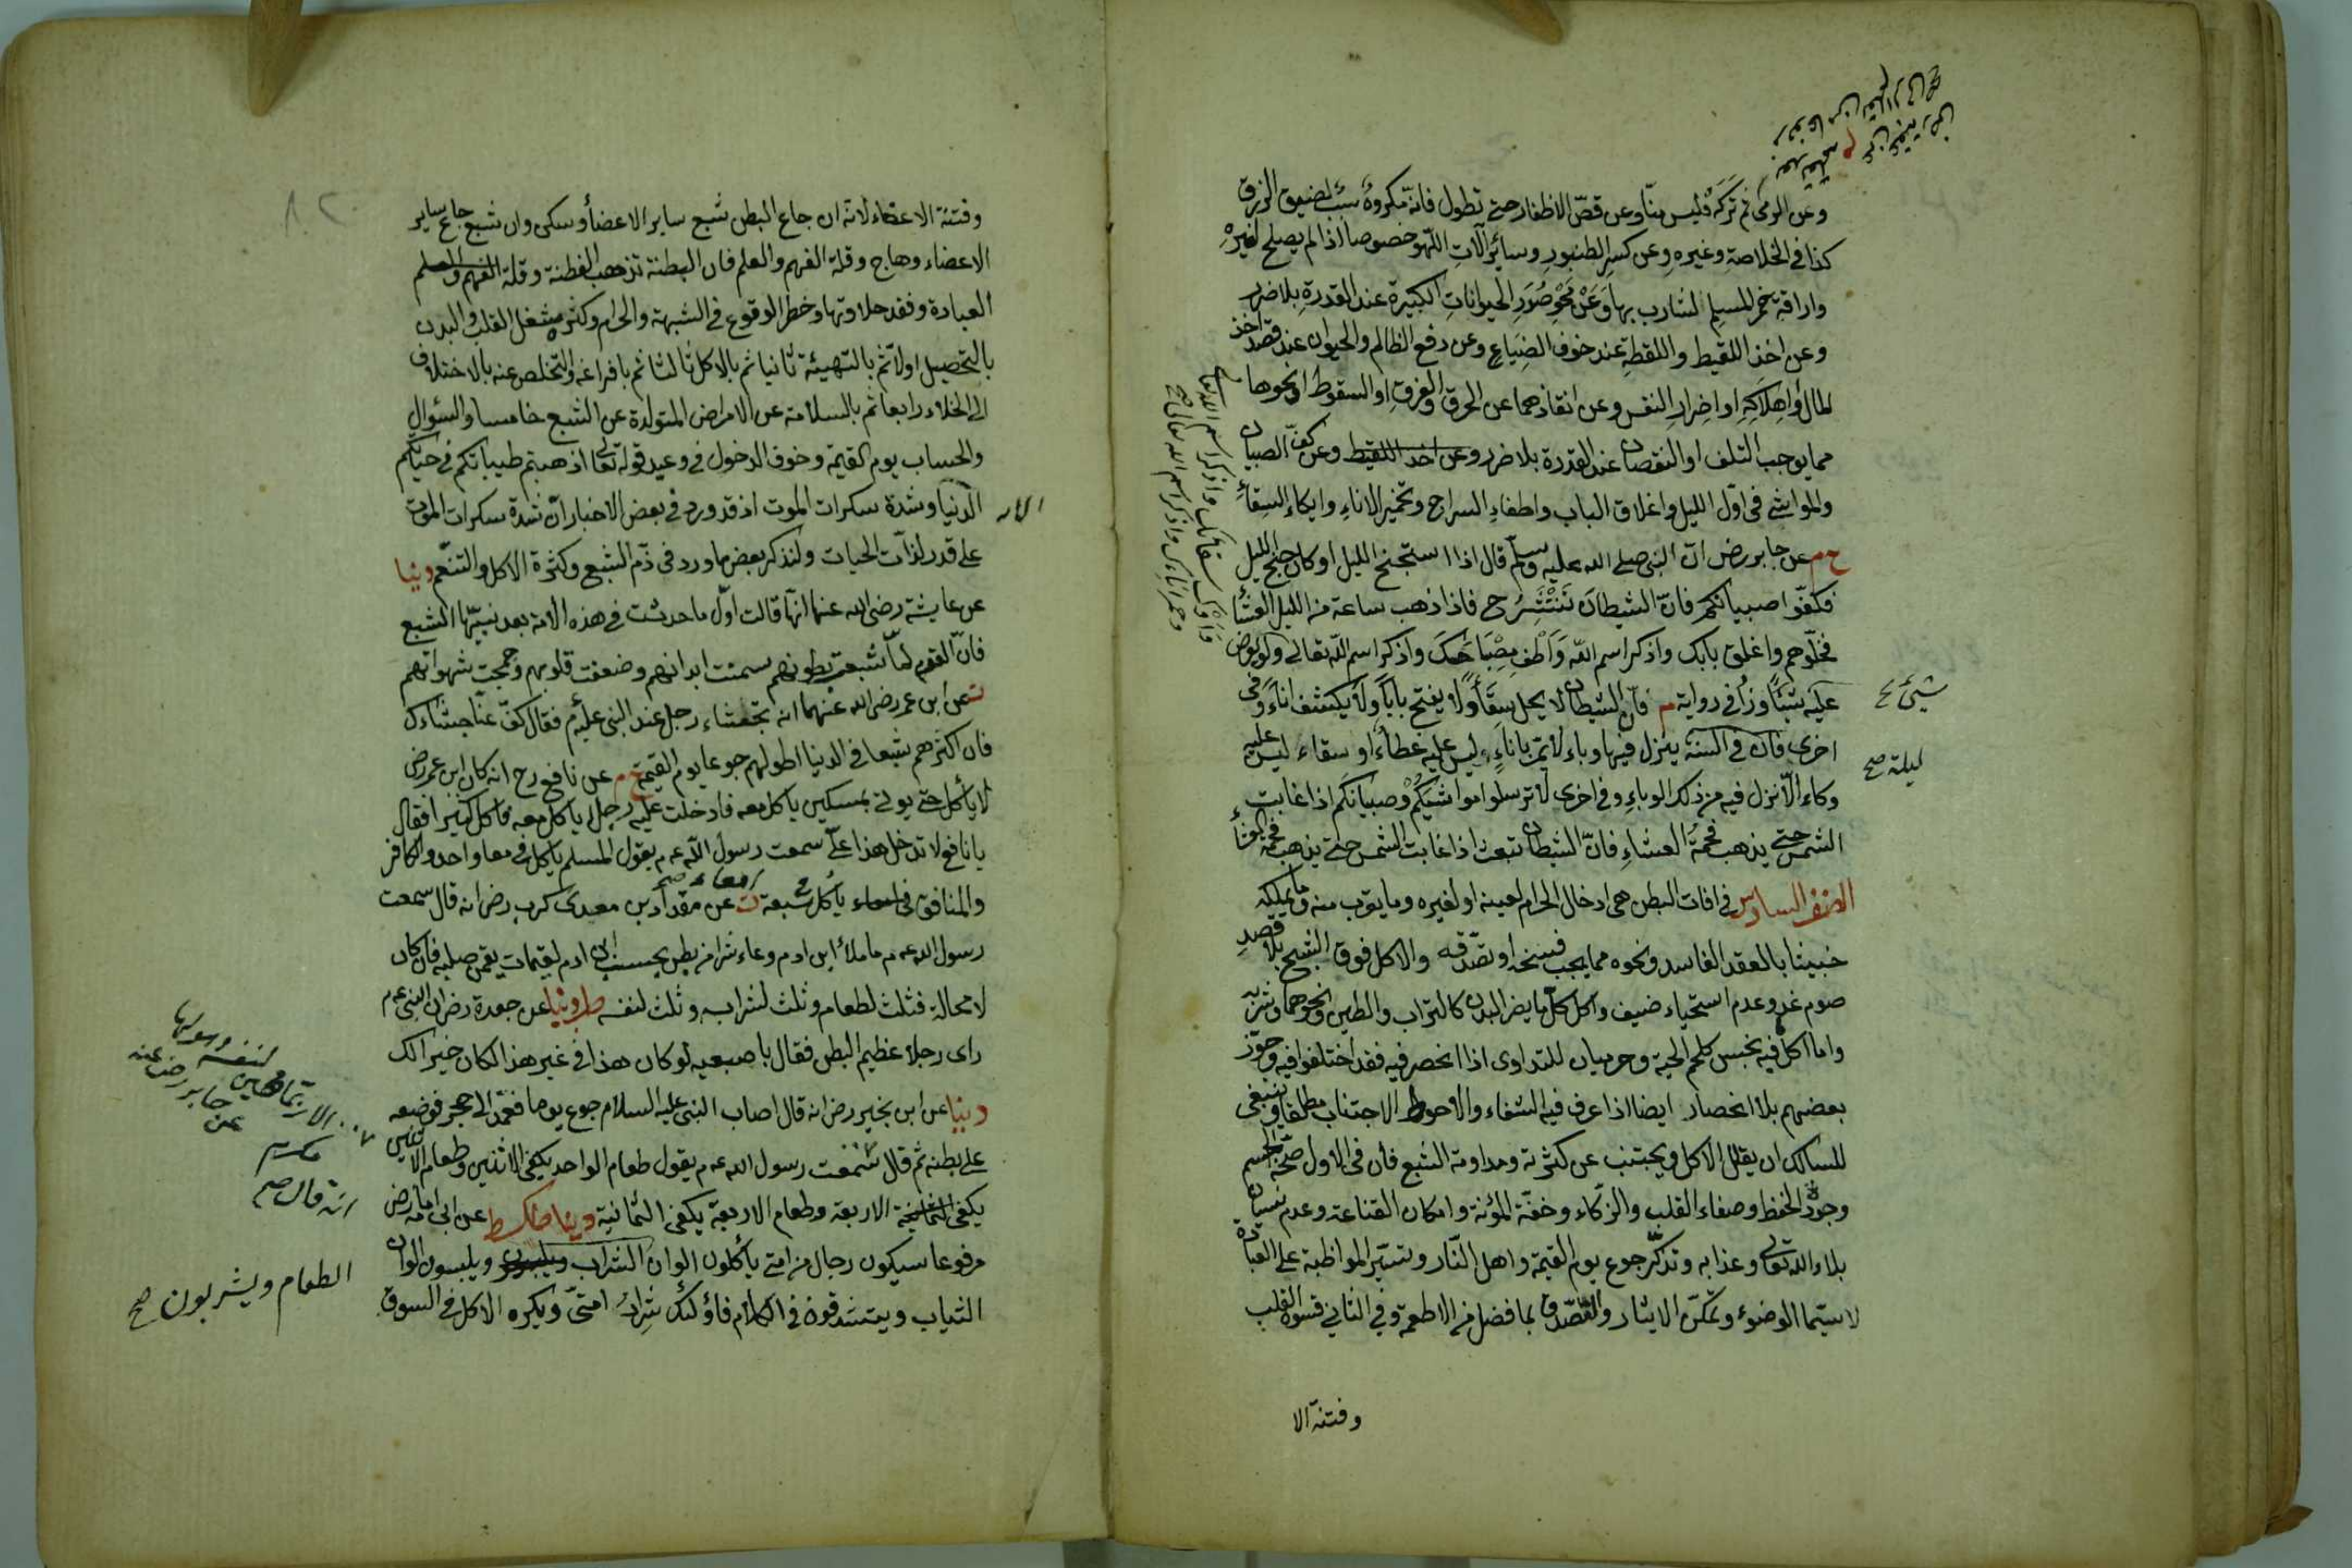 وعن الرمى ثم تركه فليس منّا وعن قصّ الاظفار حتى تطول فانه مكروهٌ سبب لضيق الرزق
كذا فى الخلاصة وغيره وعن كسر الطنبور وسائر آلات اللهو خصوصا اذا لم يصلح لغيره
واراقة خمر المسلم لشارب بها وَعَنْ مَحْوِ صُوَرِ الحيواناتِ الكبيرة عند القدرة بلا ضرر
وعن اخذ اللقيط واللقطة عند خوف الضياع وعن دفع الظالم والحيوان عند قصد اخذ
المال او اهلاكه او اضرار النفس وعن انقاذهما عن الحرق والغرق او السقوط او نحوها
مما يوجب التلف او النقصان عند القدرة بلا ضرر وعن اخذ اللقيط وعن كفّ الصبيان
والمواشى فى اوّل الليل واغلاق الباب واطفاء السراج وتخمير الاناء وايكاء السقاء
خ م عن جابر رض ان النبى صلى الله عليه وسلم قال اذا استجنح الليل او كان جنح الليل
فكفّوا صبيانكم فانّ الشيطان تَنْتَشِرُ ح فاذا ذهب ساعة من الليل العشاء
فخلّوهم واغلق بابك واذكر اسم الله وَاَطْفِ مِصْبَاحَكَ واذكر اسم الله تعالى ولو تعرض
عليه شيئا وزاد فى رواية م فان الشيطان لا يحل سقاءً ولا يفتح باباً ولا يكشف اناءً وفى
اخرى فان فى السنة ينزل فيها وباء لا يمرّ باناءٍ ليس عليه غطاءٌ او سقاء ليس عليه
وكاء الا نزل فيه من ذلك الوباء وفى اخرى لا ترسلوا مواشيكم وصبيانكم اذا غابت
الشمس حتى يذهب فحمة العشاء فانّ الشيطان تبعث اذا غابت الشمس حتى يذهب فحمة العشاء
الصنف السادس فى افات البطن هى ادخال الحرام لعينه او لغيره وما يقرب منه وما يملكه
خبيثا بالعقد الفاسد ونحوه مما يجب فسخه او تصدّقه والاكل فوق الشبع بلا قصد
صوم غد وعدم استحياء ضيف واكل كلّ ما يضر البدن كالتراب والطين ونحوهما وشربه
واما اكل فيه نجس كلحم الحية وحرميان للتداوى اذا انحصر فيه فقد اختلفوا فيه وجوّز
بعضهم بلا انحصار ايضا اذا عرف فيه الشفاء والاحوط الاجتناب مطلقا وينبغى
للسالك ان يقلل الاكل ويجتنب عن كثرته ومداومة الشبع فان فى الاول صحّة الجسم
وجودة الحفظ وصفاء القلب والزّكاء وخفّة المؤنة وامكان القناعة وعدم نسيان
بلاء الله تعالى وعذابه وتذكّر جوع يوم القيمة واهل النّار وتيسّر المواظبة على العبادة
لا سيّما الوضوء وتمكّن الايثار والتصدّق بما فضل من الاطعمة وفى الثانى قسوة القلب
وفتنة الا
شيئ صح
ليلة صح
وَاَوْكِ سقائك واذكر اسم الله تعالى
وخمر اناءك واذكر اسم الله تعالى صح
وفتنة الاعضاء لانه ان جاع البطن شبع ساير الاعضأ وسكن وان شبع جاع ساير
الاعضاء وهاج وقلة الفهم والعلم فان البطنة تذهب الفطنة وقلة الفهم والعلم
العبادة وفقد حلاوتها وخطر الوقوع فى الشبهة والحرام وكثرة شغل القلب والبدن
بالتحصيل اولا ثم بالتهيئة ثانيا ثم بالاكل ثالثا ثم بافراغه والتخلص عنه بالاختلاف
الى الخلاء رابعا ثم بالسلامة عن الامراض المتولدة عن الشبع خامسا والسؤال
والحساب يوم القيمة وخوف الدخول فى وعيد قوله تعالى اذهبتم طيباتكم فى حياتكم
الدنيا وشدة سكرات الموت اذ قد ورد فى بعض الاخبار ان شدة سكرات الموت
على قدر لذات الحيات ولنذكر بعض ما ورد فى ذمّ الشبع وكثرة الاكل والتنعّم دنيا
عن عايشة رضى الله عنها انها قالت اول ما حدثت فى هذه الامة بعد نبيّها الشبع
فانّ القوم لمّا شبعت بطونهم سمنت ابدانهم وضعفت قلوبهم وجمحت شهواتهم
ت عن ابن عمر رضى الله عنهما انه تجشاء رجل عند النبى علم فقال كفّ عنّا جشاءك
فان اكثرهم شبعا فى الدنيا اطولهم جوعا يوم القيمة خ م عن نافع رح انه كان ابن عمر رض
لا يأكل حتى يوتى بمسكين ياكل معه فادخلت عليه رجلا ياكل معه فاكل كثيرا فقال
يا نافع لا تدخل هذا علىّ سمعت رسول الله عم يقول المسلم ياكل فى معا واحد والكافر
والمنافق فى امعاء ياكل فى سبعة امعاء صح ت عن مقدادبن معدى كرب رض انه قال سمعت
رسول الله عم ما ملأ ابن ادم وعاء شرا من بطن بحسب ابن ادم لقيمات يقمن صلبه فان كان
لا محالة فثلث لطعام وثلث لشرابه وثلث لنفسه طب ودنيا عن جعدة رض ان النبى عم
راى رجلا عظيم البطن فقال باصبعيه لو كان هذا فى غير هذا لكان خيرا لك
دنيا عن ابن بجير رض انه قال اصاب النبى عليه السلام جوع يوما فعمد الى حجر فوضعه
على بطنه ثم قال سمعت رسول الله عم يقول طعام الواحد يكفى الاثنين وطعام الاثنين
يكفى الاربعة وطعام الاربعة يكفى الثمانية دنيا طك ط عن ابى امامة رض
مرفوعا سيكون رجال من امتى يأكلون الوان الشراب ويلبسون ويلبسون الوان
الثياب ويتشدقون فى الكلام فاولئك شرار امتىّ ويكره الاكل فى السوق
الاية
عن جابر رضى عنه
انه قال صح
الطعام ويشربون صح